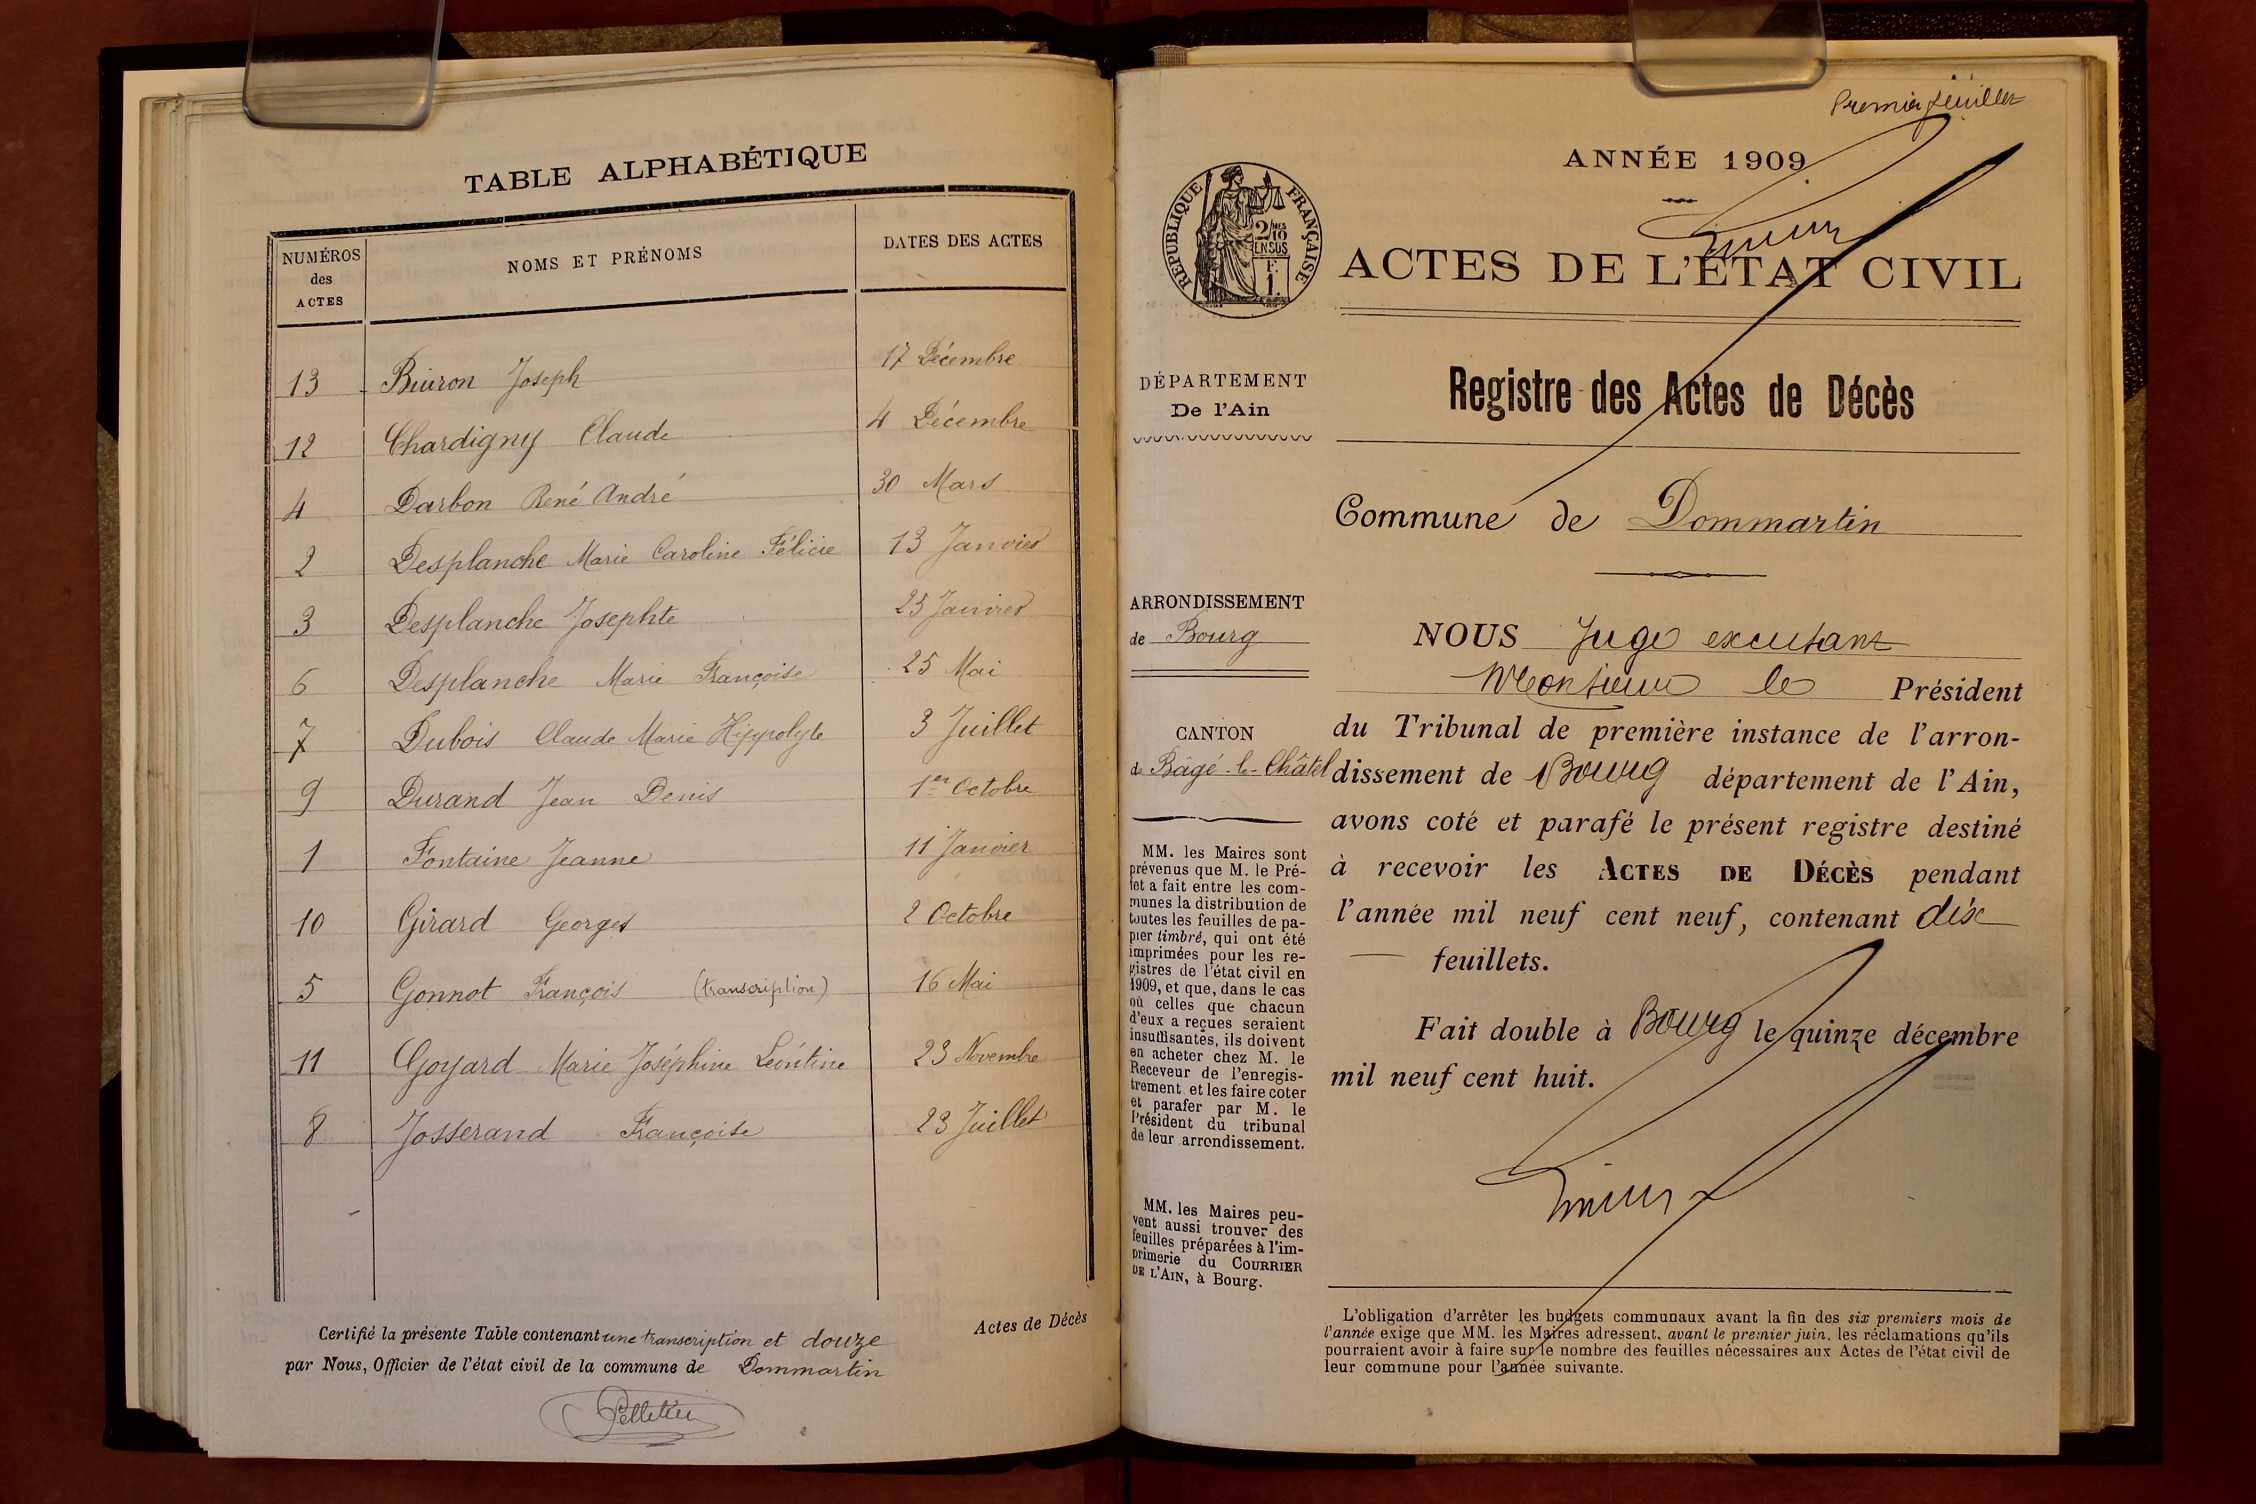 TABLE ALPHABÉTIQUE
NUMÉROS
des
ACTES
NOMS ET PRÉNOMS
DATES DES ACTES
13 Biuron Joseph 17 Décembre
12 Chardigny Claude 4 Décembre
4 Darbon René André 30 Mars
2 Desplanche Marie Caroline Félicie 13 Janvier
3 Desplanche Josephte 25 Janvier
6 Desplanche Marie Françoise 25 Mai
7 Dubois Claude Marie Hippolyte 3 Juillet
9 Durand Jean Denis 1er Octobre
1 Fontaine Jeanne 11 Janvier
10 Girard Georges 2 Octobre
5 Gonnot François (transcription) 16 Mai
11 Goyard Marie Joséphine Léontine 23 Novembre
8 Josserand Françoise 23 Juillet
Actes de Décès
Certifié la présente Table contenant une transcription et douze
par Nous, Officier de l'état civil de la commune de Dommartin
Pelletier
Premier feuillet
ANNÉE 1909
RÉPUBLIQUE FRANÇAISE
2/10
MES
EN SUS
F.
1.
ACTES DE L'ÉTAT CIVIL
DÉPARTEMENT
De l'Ain
Registre des Actes de Décès
Commune de Dommartin
ARRONDISSEMENT
de Bourg
CANTON
de Bâgé-le-Châtel
MM. les Maires sont
prévenus que M. le Pré-
fet a fait entre les com-
munes la distribution de
toutes les feuilles de pa-
pier timbré, qui ont été
imprimées pour les re-
gistres de l'état civil en
1909, et que, dans le cas
où celles que chacun
d'eux a reçues seraient
insuffisantes, ils doivent
en acheter chez M. le
Receveur de l'enregis-
trement et les faire coter
et parafer par M. le
Président du tribunal
de leur arrondissement.
MM. les Maires peu-
vent aussi trouver des
feuilles préparées à l'im-
primerie du COURRIER
DE L'AIN, à Bourg.
NOUS Juge excusant
Monsieur le Président
du Tribunal de première instance de l'arron-
dissement de Bourg département de l'Ain,
avons coté et parafé le présent registre destiné
à recevoir les ACTES DE DÉCÈS pendant
l'année mil neuf cent neuf, contenant dix
feuillets.
Fait double à Bourg le quinze décembre
mil neuf cent huit.
L'obligation d'arrêter les budgets communaux avant la fin des six premiers mois de
l'année exige que MM. les Maires adressent, avant le premier juin, les réclamations qu'ils
pourraient avoir à faire sur le nombre des feuilles nécessaires aux Actes de l'état civil de
leur commune pour l'année suivante.